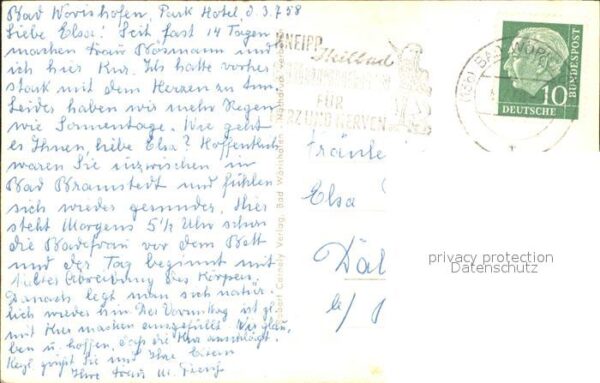 Bad Wörishofen, Park Hotel, d. 3.7.58
Liebe Elsa! Seit fast 14 Tagen
machen Frau Bösmann und
ich hier Kur. Ich hatte vorher
stark mit dem Herzen zu tun.
Leider haben wir mehr Regen
wie Sonnentage. Wie geht
es Ihnen, liebe Elsa? Hoffentlich
waren Sie inzwischen in
Bad Bramstedt und fühlen
sich wieder gesunder. Hier
steht Morgens 5½ Uhr schon
die Badefrau vor dem Bett
und der Tag beginnt mit
kalter Abreibung des Körpers.
Danach legt man sich natür-
lich wieder hin. Der Vormittag ist
mit Kur machen ausgefüllt. Wir glau-
ben u. hoffen, dass die Kur anschlägt.
Herzl. grüßt Sie und Ihre Eltern
Ihre Frau M.
Verlag, Bad Wörishofen
KNEIPP
Heilbad
FÜR
HERZ UND NERVEN
BAD WÖRI
10
DEUTSCHE
BUNDESPOST
Fräule
Elsa
Däl
privacy protection
Datenschutz